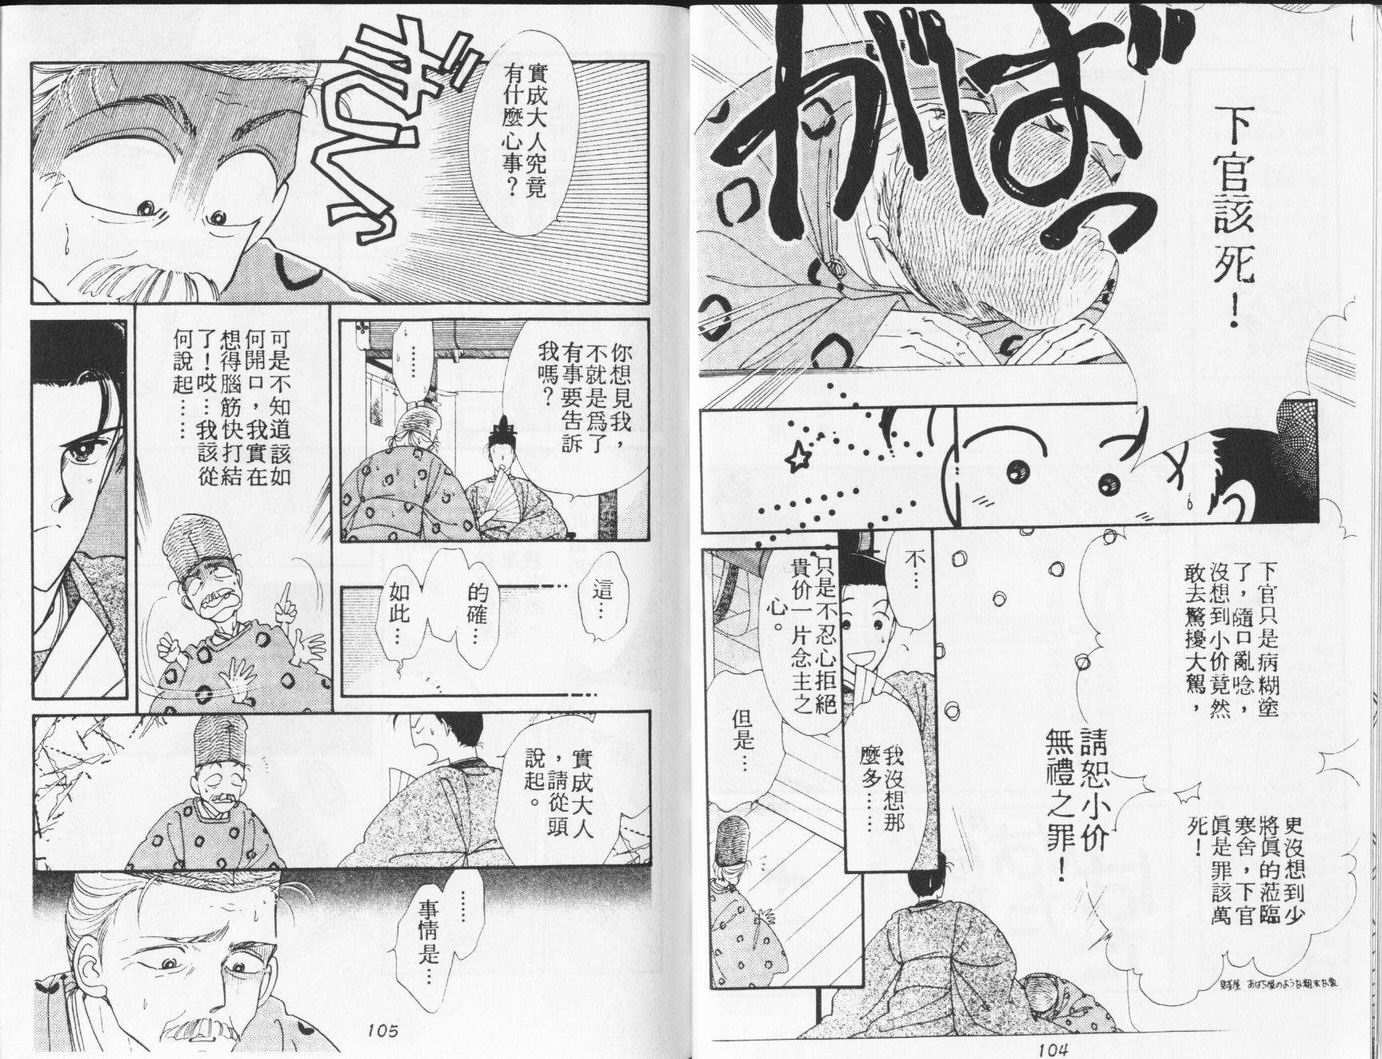 がばっ
下官該死！
下官只是病糊塗
了，隨口亂唸，
沒想到小价竟然
敢去驚擾大駕，
更沒想到少
將真的蒞臨
寒舍，下官
真是罪該萬
死！
請恕小价
無禮之罪！
不…
我沒想那
麼多……
只是不忍心拒絕
貴价一片念主之
心。
但是…
104
實成大人究竟
有什麼心事？
ぎくっ
你想見我，
不就是為了
有事要告訴
我嗎？
……
這…
的確…
如此…
可是不知道該如
何開口，我實在
想得腦筋快打結
了！哎…我該從
何說起……
實成大人
，請從頭
說起。
……
事情是…
105